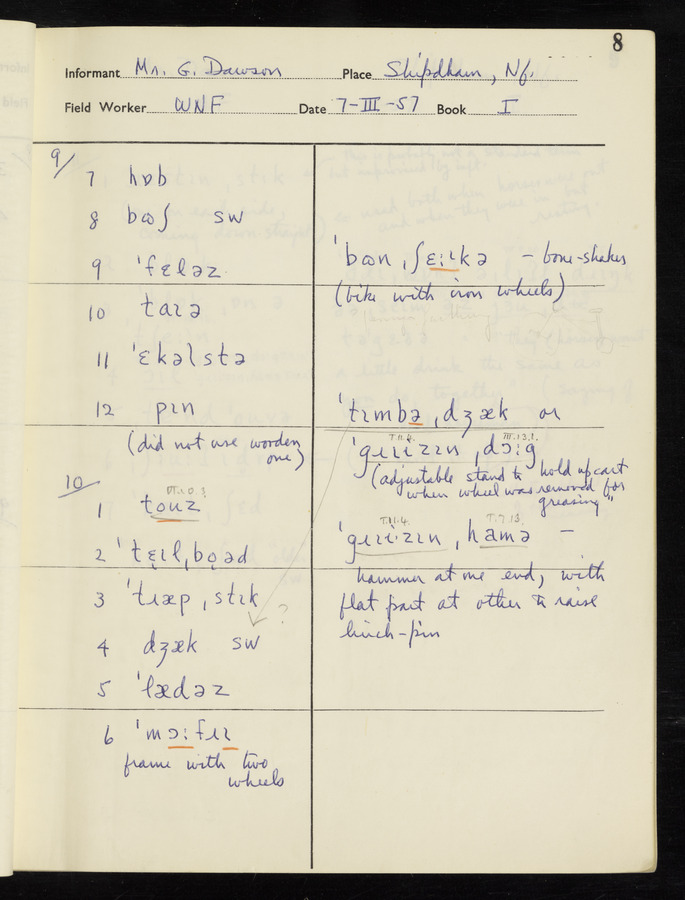 8
Informant Mr. G. Dawson Place Shipdham, Nf.
Field Worker WNF Date 7-III-57 Book I
9/
7 hɒb
8 bɷʃ SW
9 ˈfɛləz
10 taɪə
11 ˈɛkəlstə
12 pɪn
(did not use wooden
one)
10/
1 toʊz
VI.10.3.
2 ˈtɛɪl,boəd
3 ˈtɹæp,stɪk
4 dʒæk SW
5 ˈlædəz
6 ˈmɔ:fɹɪ
frame with two
wheels
ˈbɷn,ʃɛ:ɪkə – bone-shaker
(bike with iron wheels)
ˈtɪmbə,dʒæk or
T.11.4. III.13.1.
ˈgɹɪɪzɪn,dɔ:g
(adjustable stand to hold up cart
when wheel was removed for
greasing"
T.11.4. I.7.13.
ˈgɹɪi·zɪn,hamə –
hammer at one end, with
flat part at other to raise
linch-pin
?